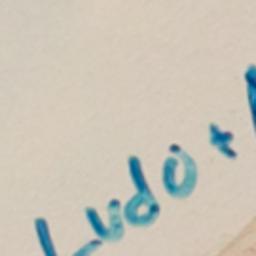 Ludo +